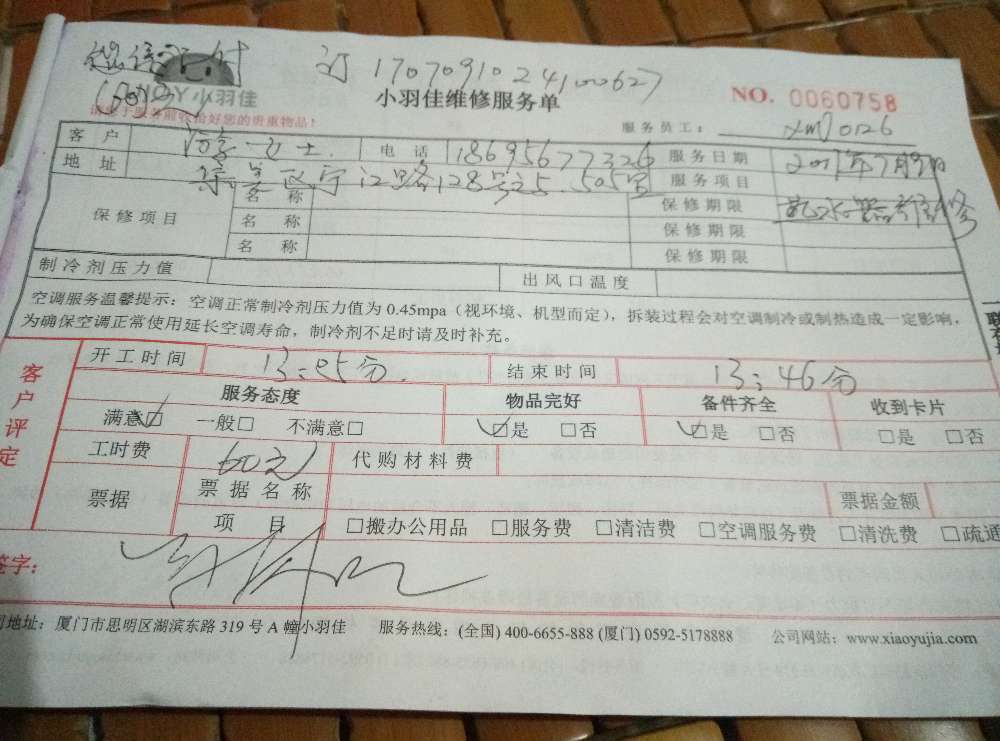 微信已付 订 1707091024100627
小羽佳
小羽佳维修服务单 NO. 0060758
请您于服务前收拾好您的贵重物品!
服务员工: xm20126
客户 女士 电话 18695677326 服务日期 2017年7月9日
地址 区宁江路128号之5 505室 服务项目
保修项目 名称 保修期限 热水器维修
名称 保修期限
名称 保修期限
制冷剂压力值 出风口温度
空调服务温馨提示:空调正常制冷剂压力值为 0.45mpa(视环境、机型而定),拆装过程会对空调制冷或制热造成一定影响,
为确保空调正常使用延长空调寿命,制冷剂不足时请及时补充。
客户评定
开工时间 13:05分 结束时间 13:46分
服务态度 物品完好 备件齐全 收到卡片
满意☑ 一般□ 不满意□ ☑是 □否 ☑是 □否 □是 □否
工时费 60元 代购材料费
票据 票据名称 票据金额
项目 □搬办公用品 □服务费 □清洁费 □空调服务费 □清洗费 □疏通
签字:
地址:厦门市思明区湖滨东路 319 号 A 幢小羽佳 服务热线:(全国) 400-6655-888 (厦门) 0592-5178888 公司网站:www.xiaoyujia.com